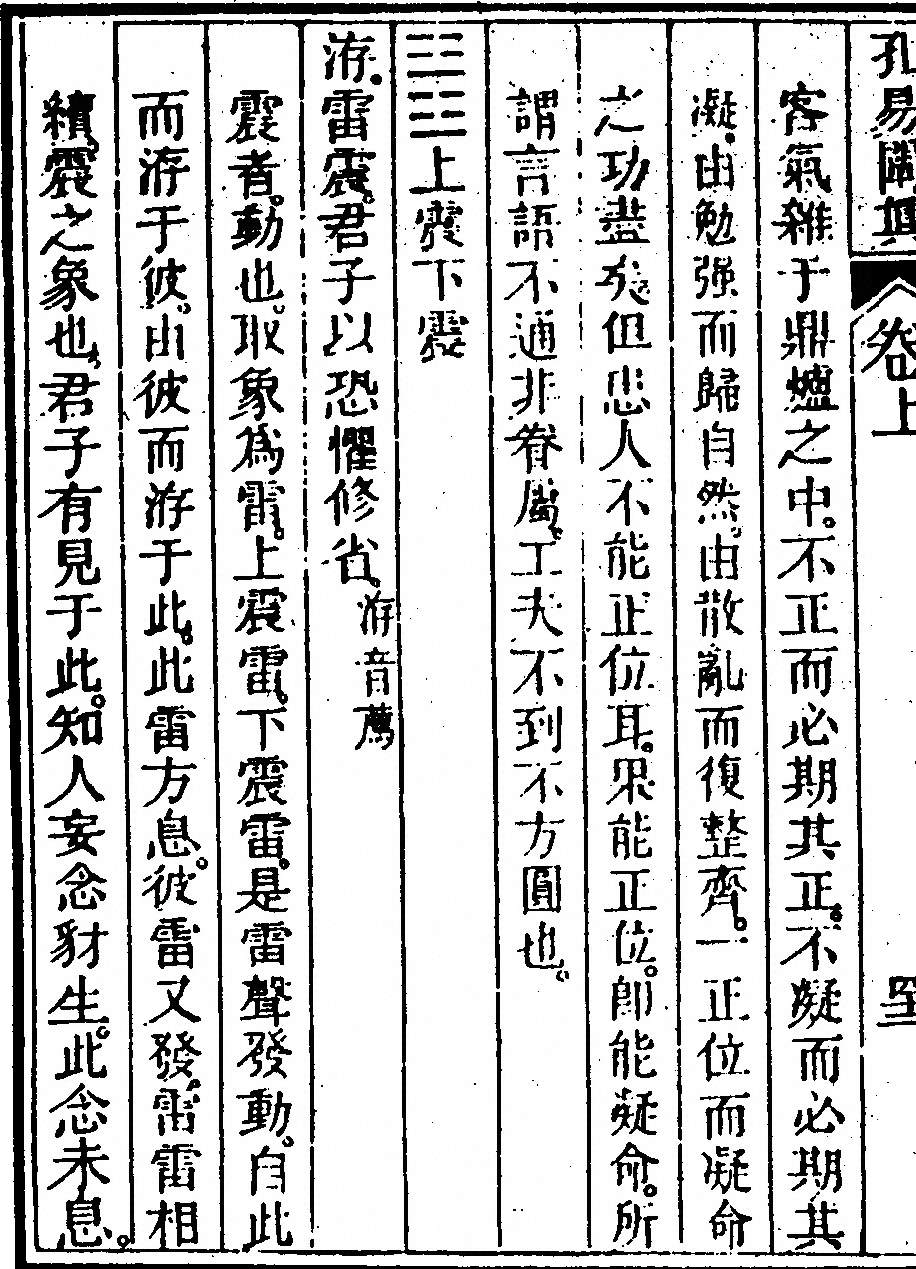 孔易闡真
卷上
客氣雜于鼎爐之中。不正而必期其正。不凝而必期其
凝。由勉强而歸自然。由散亂而復整齊。一正位而凝命
之功盡矣。但患人不能正位耳。果能正位。卽能凝命。所
謂言語不通非眷屬。工夫不到不方圓也。
䷲上震下震
洊。雷震。君子以恐懼修省。洊音薦
震者。動也。取象爲雷。上震雷。下震雷。是雷聲發動。自此
而洊于彼。由彼而洊于此。此雷方息。彼雷又發。雷雷相
續。震之象也。君子有見于此。知人妄念豺生。此念未息。